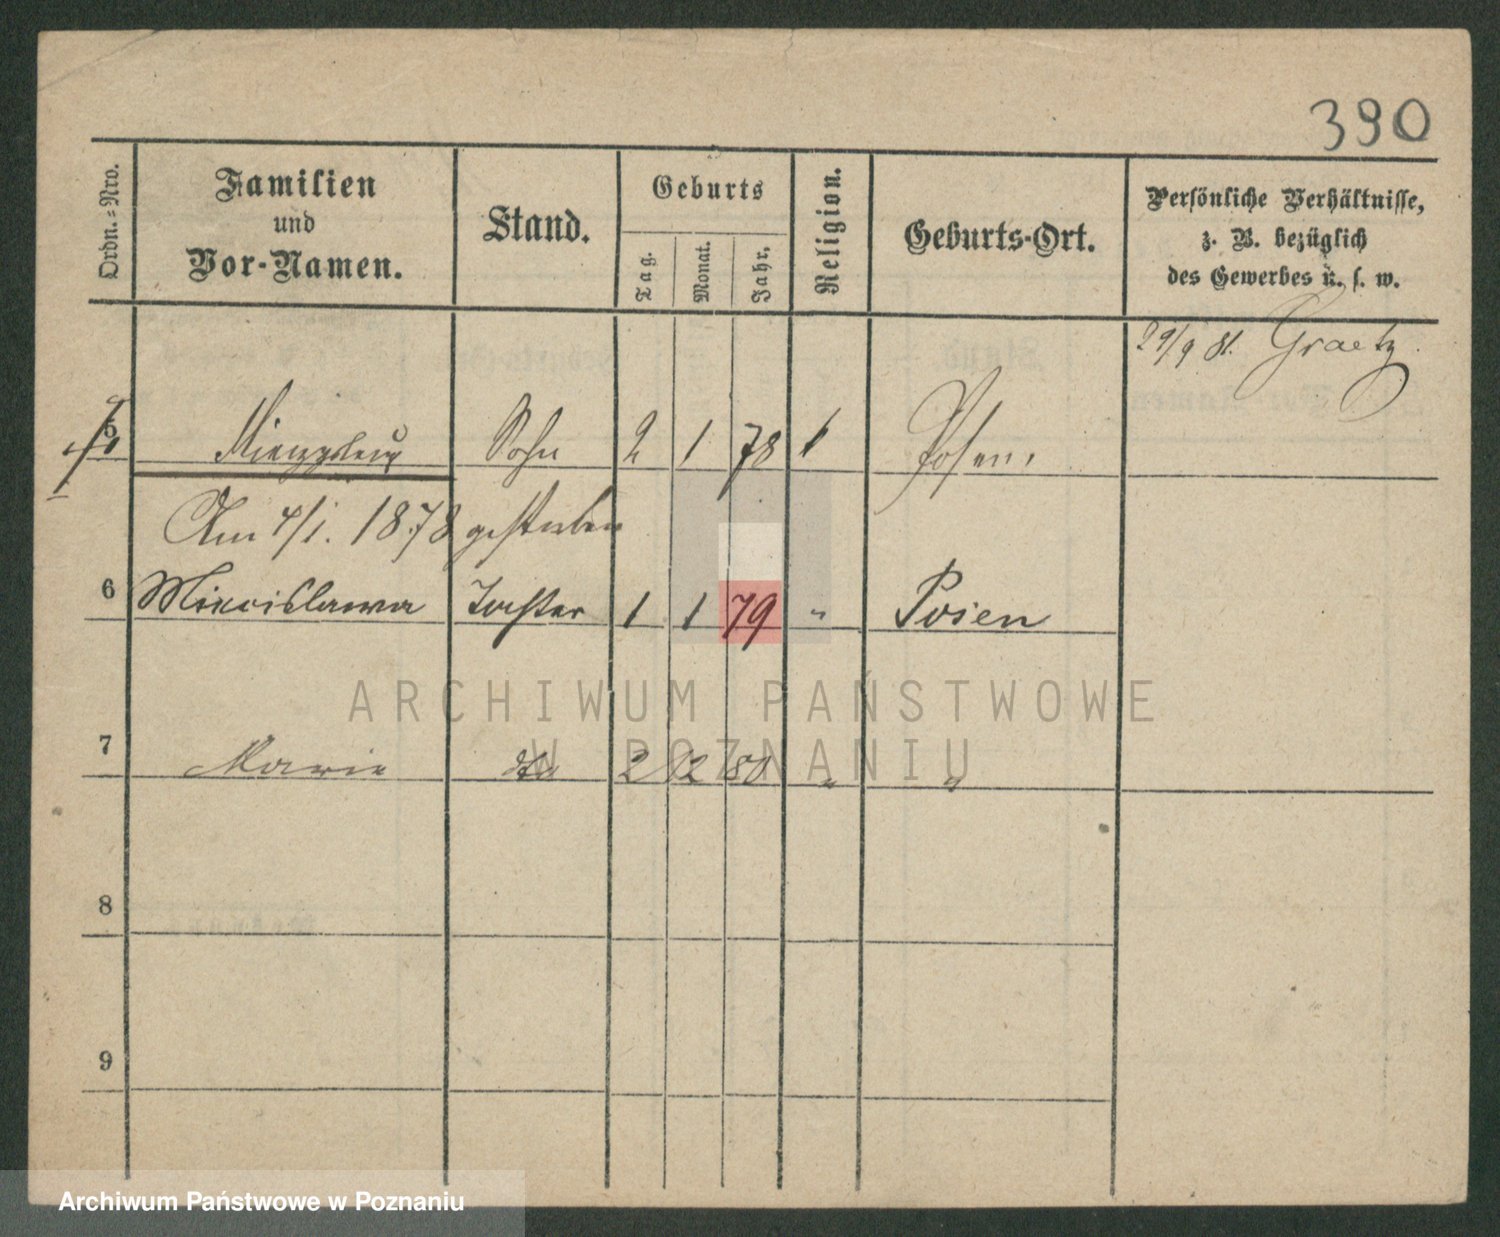 390
Ordn.=Nro.
Familien
und
Vor-Namen.
Stand.
Geburts
Tag.
Monat.
Jahr.
Religion.
Geburts-Ort.
Persönliche Verhältnisse,
z. B. bezüglich
des Gewerbes u. s. w.
29/9 81. Graetz
5 Sohn 2 1 78 Posen.
Am 4/1. 1878 gestorben
6 Miecislawa Tochter 1 1 79 " Posen
7 Marie dto 2 12 80 " "
8
9
ARCHIWUM PAŃSTWOWE
W POZNANIU
Archiwum Państwowe w Poznaniu